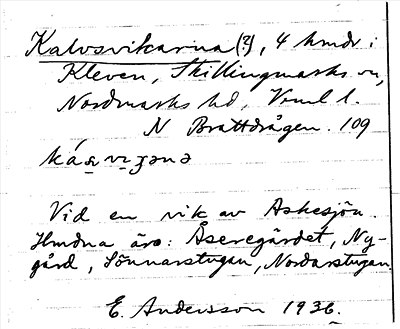 Kalvsvikarina (?), 4 hmdr i
Kleven, Skillingmarks sn,
Nordmarks hd, Vrml l.
N Brattdrågen. 109
Vid en vik av Askesjön.
Hmdna äro: Åseregärdet, Ny-
gård, Sönnarstugan, Nordarstugan
E. Andersson 1936.